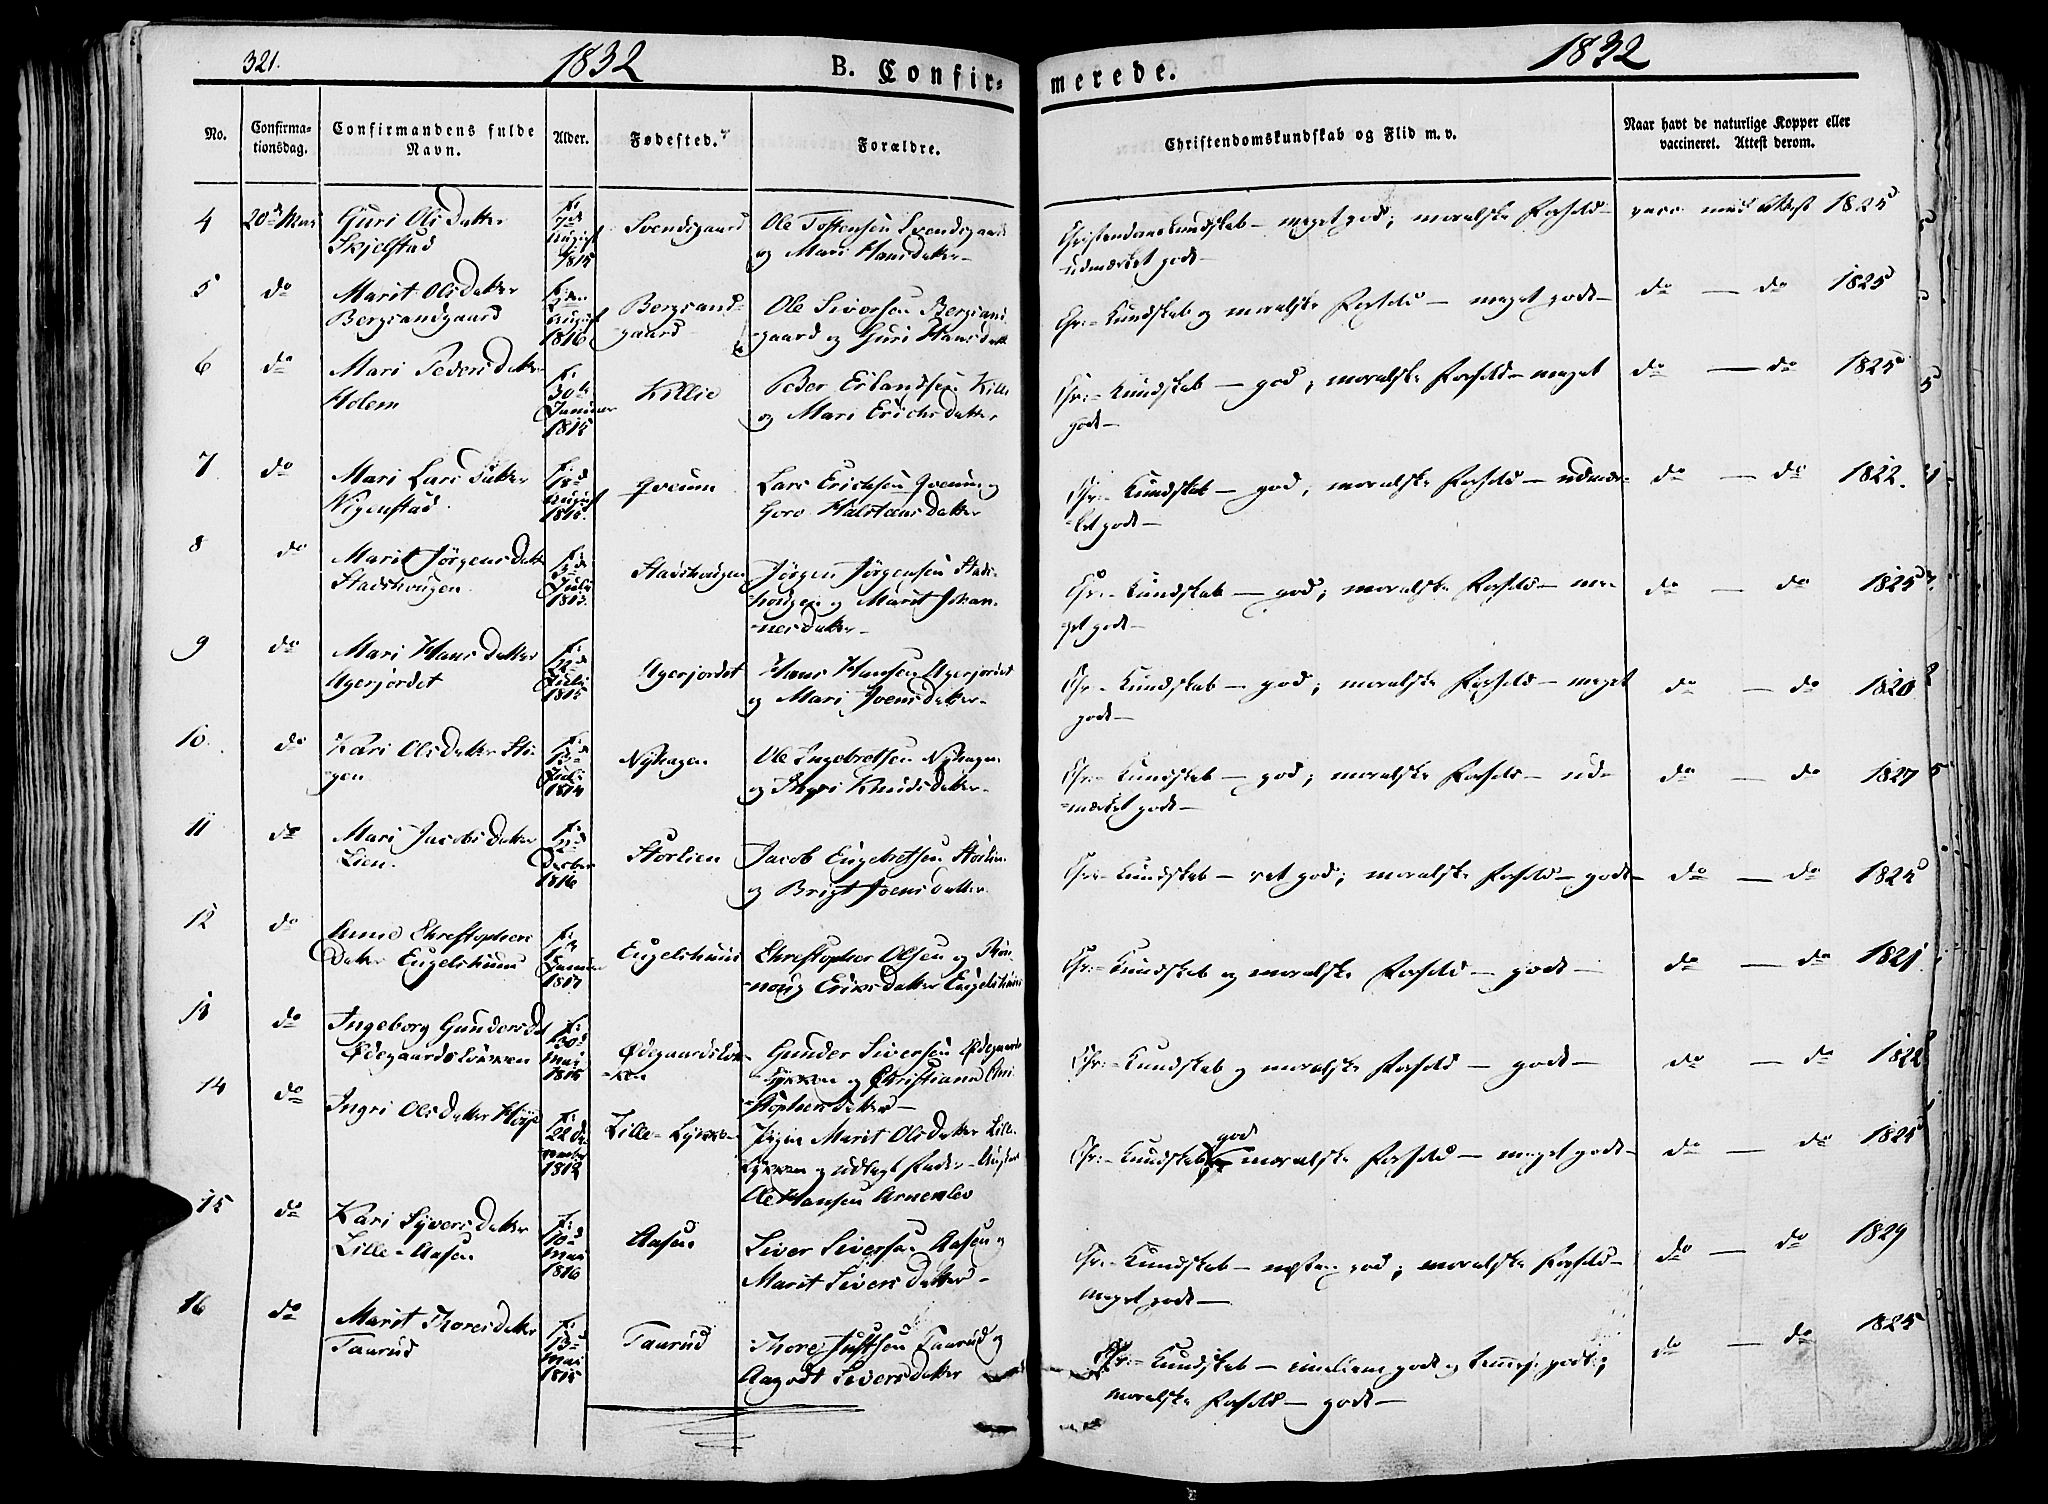 321.
1832
B. Confir-
merede.
1832
No.
Confirma-
tionsdag.
Confirmandens fulde
Navn.
Alder.
Fødested.
Forældre.
Christendomskundskab og Flid m. v.
Naar havt de naturlige Kopper eller
vaccineret. Attest derom.
4
20de
Guri Olsdatter
Skjelstad
f:
7de
August
1815
Svendsgaard
Ole Tostensen Svendsgaard
og Mari Hansdatter-
Christendomskundskab - meget god; moralske Forhold -
udmærket godt -
vacc med Attest 1825
5
do
Marit Olsdatter
Bergsandgaard
August
1816
Bergsand-
gaard
Ole Siversen Bergsand-
gaard og Guri Hansdatter
Chr:- Kundskab og moralske Forhold - meget godt -
do - do 1825
6
do
Mari Pedersdatter
Holem
f:
30te
Januar
1815
Killie
Peder Erlandsen Kille
og Mari Erichsdatter
Chr:- Kundskab - god; moralske Forhold - meget
godt -
do - do 1825
7
do
Mari Larsdatter
Nigenstad.
August
1815.
Qveum
Lars Erichsen Qveum og
Goro Halstensdatter
Chr:- Kundskab - god; moralske Forhold - udmær-
ket godt -
do - do 1822.
8
do
Marit Jörgensdatter
Stadshougen
Juli
Stadshougen
Jörgen Jörgensen Stads-
hougen og Marit Johan-
nesdatter -
Chr:- Kundskab - god; moralske Forhold - me-
get godt -
do - do 1825
9
do
Mari Hansdatter
Agerjordet
Juli
1815
Agerjordet
Hans Hansen Agerjordet
og Mari Joensdatter-
Chr:- Kundskab - god; moralske Forhold - meget
godt -
do - do 1820
10.
do
Kari Olsdatter Sti-
gen
Juli
1814
Nyhagen
Ole Ingebretsen Nyhagen
og Ingri Knudsdatter-
Chr:- Kundskab - god; moralske Forhold - ud-
mærket godt -
do - do 1827
11
do
Mari Jacobsdatter
Lien.
1816
Storlien
Jacob Engebretsen Storlien
og Brigt Joensdatter
Chr:- Kundskab - ret god; moralske Forhold - godt -
do - do 1825
12
do
Anne Christophers
Datter Engelshuus
Januar
1817
Engelshuus
Christopher Olsen og Rön-
noug Eriksdatter Engelshuus
Chr:- Kundskab og moralske Forhold - godt -
do - do 1821
13
do
Ingeborg Gundersd
Ødegaardslökken
f:
30
Mai
1815
Ødegaardslök-
ken
Gunder Siversen Ødegaards-
lökken og Christiane Chri-
stophersdatter -
Chr:- Kundskab og moralske Forhold - godt -
do - do 1822
14
do
Ingri Olsdatter
f:
22de
Lille-Lykken
Pigen Marit Olsdatter Lille
Lykken og udlagt Fader -
Ole Hansen
Chr:- Kundskab god moralske Forhold - meget godt -
do - do 1825
15
do
Kari Syversdatter
Lille-Aasen
f:
10
Mai
1816
Aasen
Siver Siversen Aasen og
Marit Siversdatter -
Chr:- Kundskab - næsten god; moralske Forhold -
meget godt -
do - do 1829
16
do
Marit Thoresdatter
Taarud
f:
13
Mai
1815
Taarud
Thore Justsen Taarud og
Aagodt Siversdatter
Chr:- Kundskab - godt og god;
moralske Forhold - godt -
do - do 1825